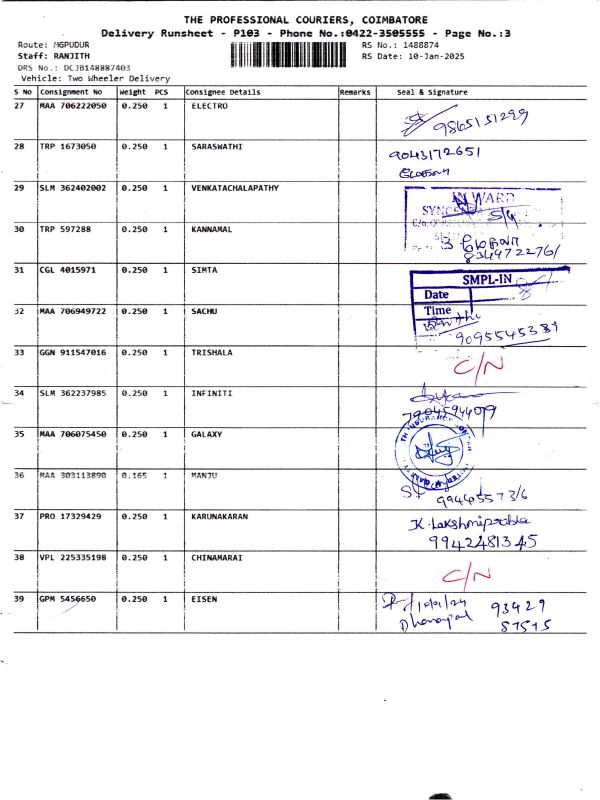 THE PROFESSIONAL COURIERS, COIMBATORE
Delivery Runsheet - P103 - Phone No.:0422-3505555 - Page No.:3
Route: MGPUDUR RS No.: 1488874
Staff: RANJITH RS Date: 10-Jan-2025
DRS No.: DCJB148887403
Vehicle: Two Wheeler Delivery
S No Consignment No Weight PCS Consignee Details Remarks Seal & Signature
27 MAA 706222050 0.250 1 ELECTRO
9865131299
28 TRP 1673050 0.250 1 SARASWATHI
9043172651
29 SLM 362402002 0.250 1 VENKATACHALAPATHY
INWARD
30 TRP 597288 0.250 1 KANNAMAL
31 CGL 4015971 0.250 1 SIMTA
SMPL-IN
Date
32 MAA 706949722 0.250 1 SACHU
Time
9095545381
33 GGN 911547016 0.250 1 TRISHALA
C/N
34 SLM 362237985 0.250 1 INFINITI
35 MAA 706075450 0.250 1 GALAXY
36 MAA 303113890 0.165 1 MANJU
37 PRO 17329429 0.250 1 KARUNAKARAN
K. Lakshmiprabha
9942481345
38 VPL 225335198 0.250 1 CHINAMARAI
C/N
39 GPM 5456650 0.250 1 EISEN
93429
Dhanapal 57515